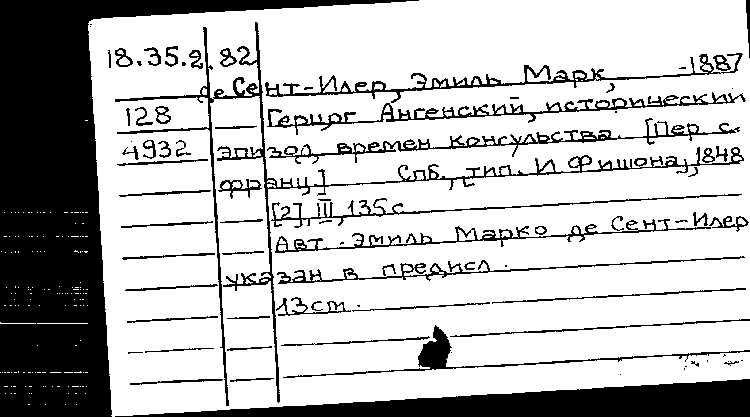 18.35.2.82
де Сент-Илер, Эмиль Марк, -1887
128 Герцог Ангенский, исторический
4932 эпизод, времен консульства. [Пер. с
франц.] Спб., тип. И. Фишона, 1848
[2], III, 135 с.
Авт. Эмиль Марко де Сент-Илер
указан в предисл.
13cm.